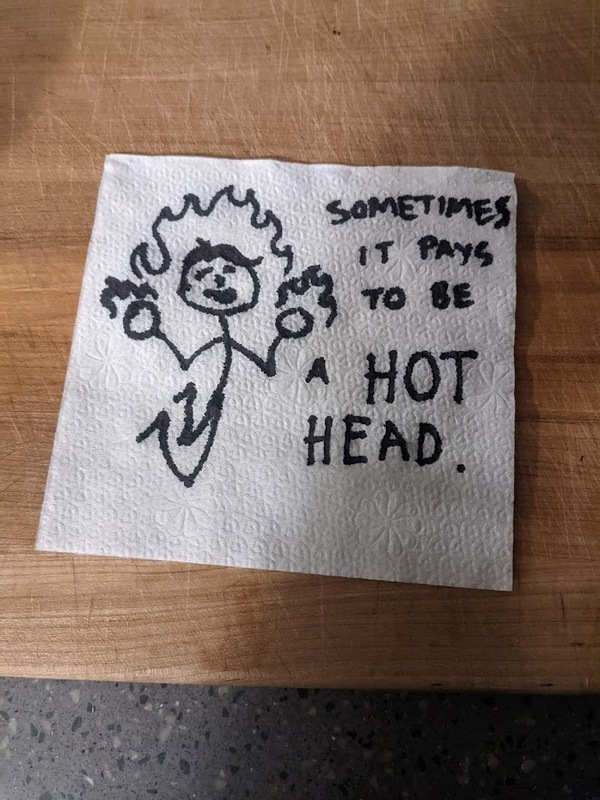 SOMETIMES
IT PAYS
TO BE
A HOT
HEAD.